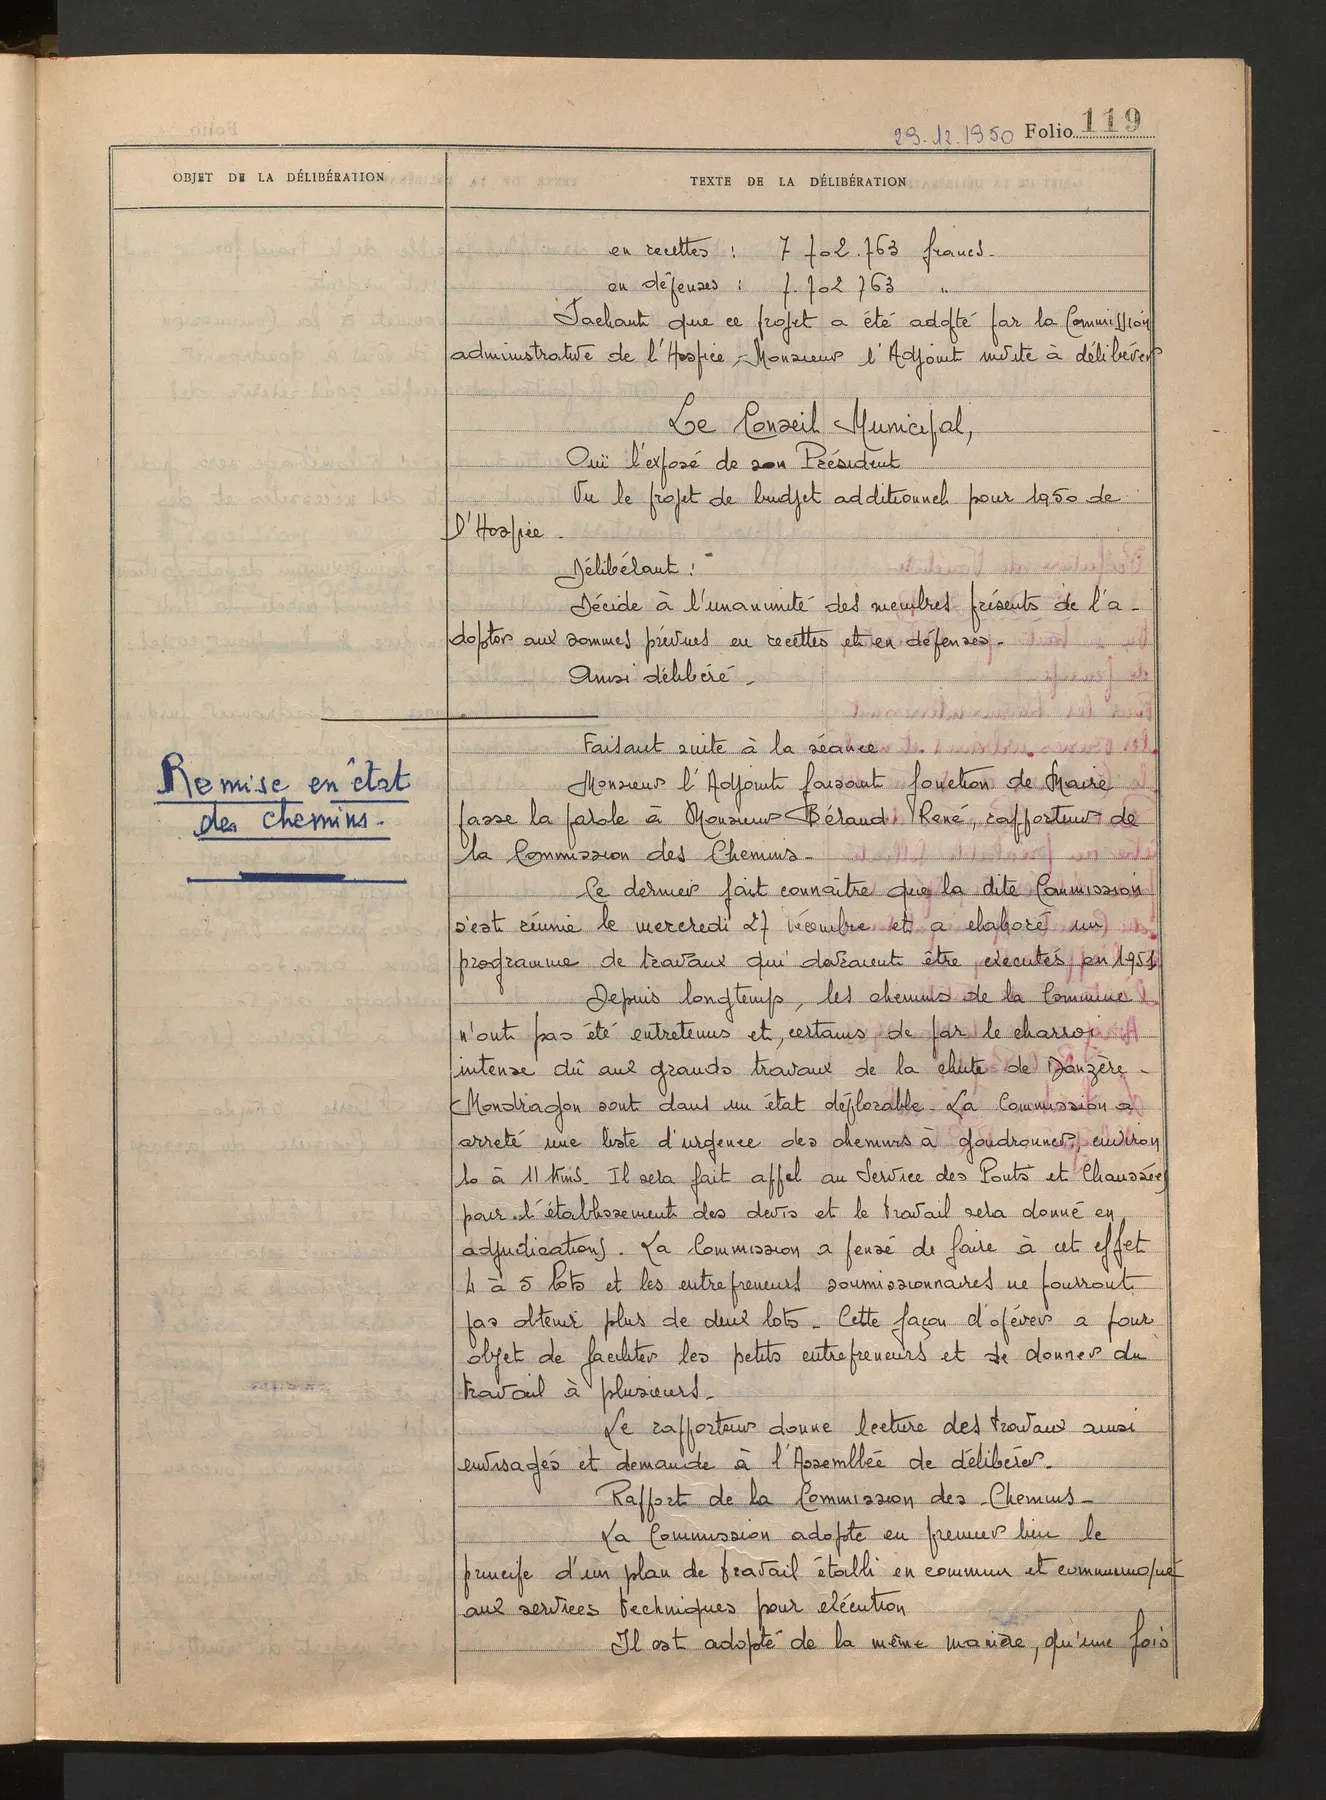 29.12.1950 Folio 119
OBJET DE LA DÉLIBÉRATION
TEXTE DE LA DÉLIBÉRATION
en recettes : 7 702.763 francs.
en dépenses : 7.702 763 "
Sachant que ce projet a été adopté par la Commission
administrative de l'Hospice, Monsieur l'Adjoint invite à délibérer
Le Conseil Municipal,
Ouï l'exposé de son Président
Vu le projet de budget additionnel pour 1950 de
l'Hospice.
Délibélant :
Décide à l'unanimité des membres présents de l'a-
dopter aux sommes prévues en recettes et en dépenses.
Ainsi délibéré.
Remise en état
des chemins.
Faisant suite à la séance
Monsieur l'Adjoint faisant fonction de Maire
passe la parole à Monsieur Béraud René, rapporteur de
la Commission des Chemins.
Ce dernier fait connaître que la dite Commission
s'est réunie le mercredi 27 décembre et a elaboré un
programme de travaux qui devraient être exécutés en 1951
Depuis longtemps, les chemins de la Commune
n'ont pas été entretenus et, certains de par le charroi
intense dû aux grands travaux de la chute de Donzère-
Mondragon sont dans un état déplorable. La Commission a
arreté une liste d'urgence des chemins à goudronner, environ
10 à 11 Kms. Il sera fait appel au Service des Ponts et Chaussées
pour l'établissement des devis et le travail sera donné en
adjudications. La Commission a pensé de faire à cet effet
4 à 5 lots et les entrepreneurs soumissionnaires ne pourront
pas obtenir plus de deux lots. Cette façon d'opérer a pour
objet de faciliter les petits entrepreneurs et de donner du
travail à plusieurs.
Le rapporteur donne lecture des travaux ainsi
envisagés et demande à l'Assemblée de délibérer.
Rapport de la Commission des Chemins.
La Commission adopte en premier lieu le
principe d'un plan de travail établi en commun et communiqué
aux services techniques pour exécution
Il est adopté de la même manière, qu'une fois